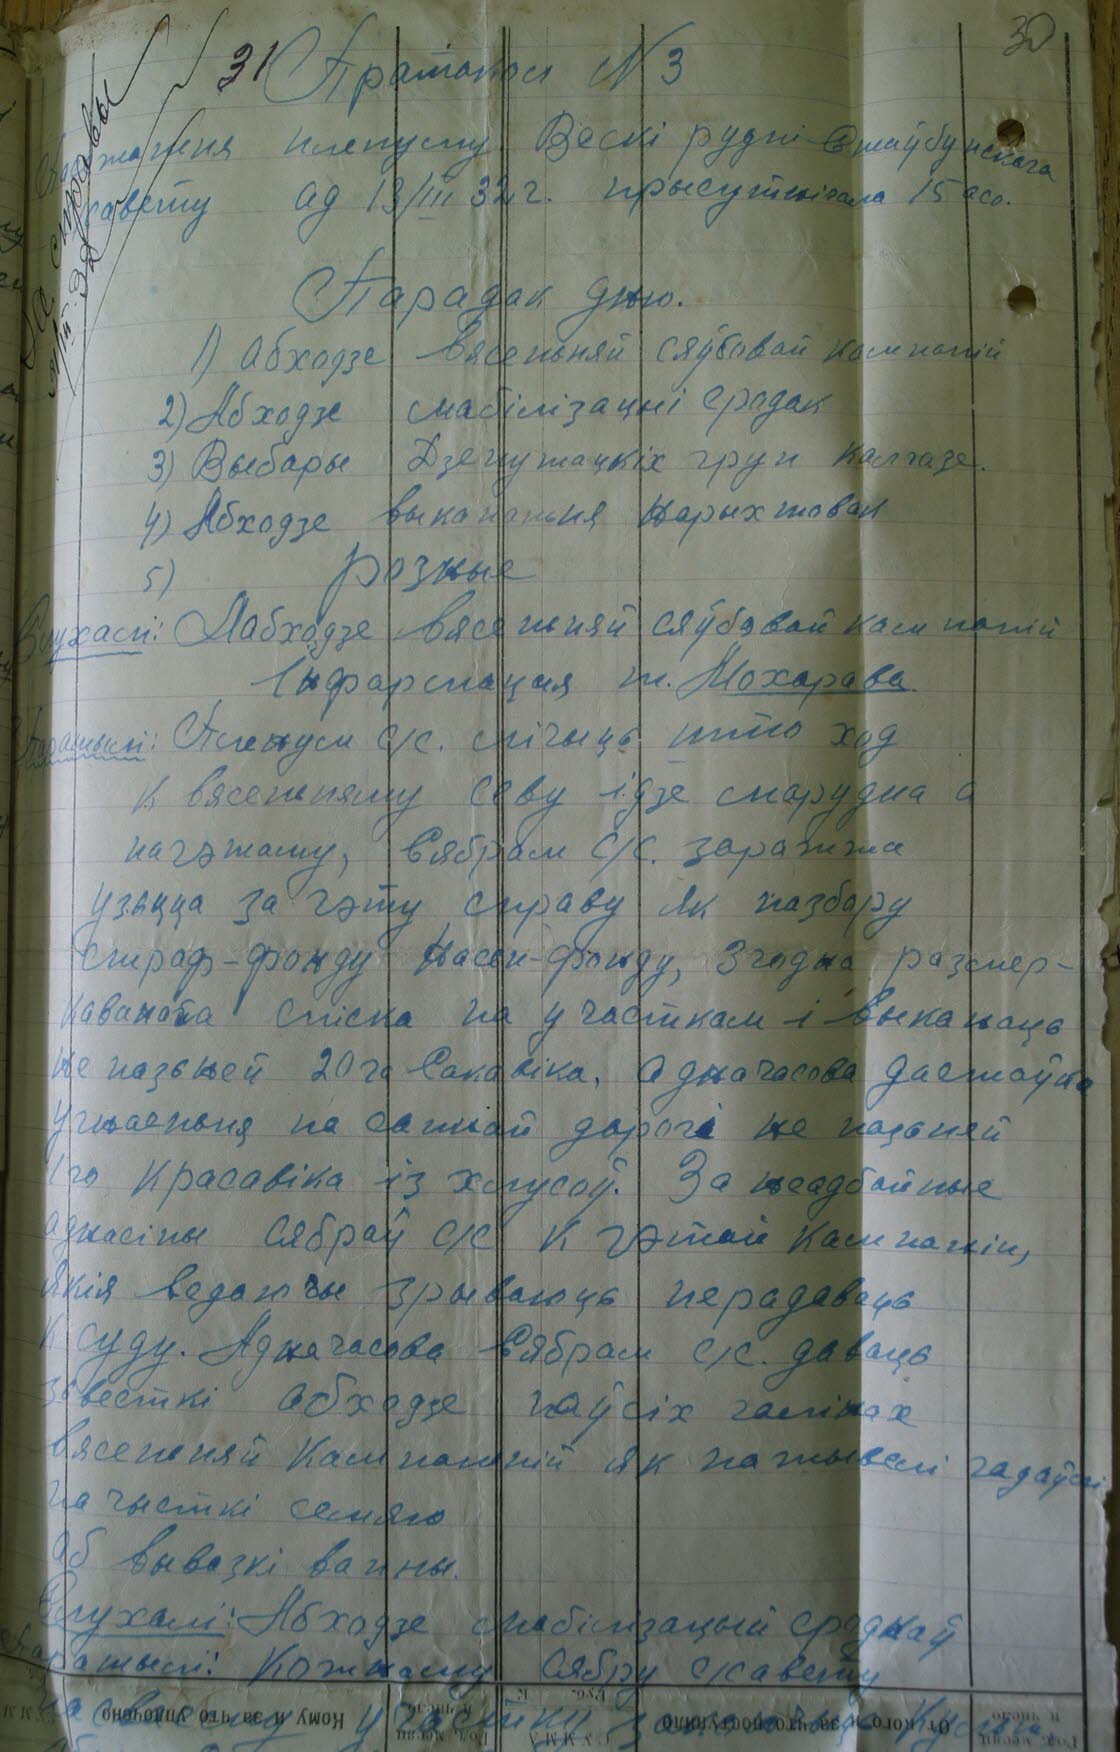 31 Пратакол N 3
30
пленуму Вескі рудні Стаўбунскага
савету ад 13/III 32 г. прысутнічала 15 асо.
Да справы
Парадак дню.
1) Абходзе вясеньняй сяўбовай кампаніі
2) Абходзе мабілізацыі сродак
3) Выбары Дэпутацкіх груп калгазе.
4) Абходзе выкананьня нарыхтовак
5) розные
Слухалі: Аабходзе вясеньняй сяўбовай кампаніі
Інфармацыя т. Мохарава
Пастанавілі: Пленум с/с. лічыць што ход
к вясеньняму севу ідзе марудна а
пагэтаму, Сябрам с/с. зараджа
узяцца за гэту справу як пазбору
страф-фонду насен-фонду, Згодна размер-
каванага спіска па участкам і выканаць
не пазьней 20 го Сакавіка, адначасова дастаўка
угнаеньня па саннай дарозі не пазьней
1го красавіка із хлусоў. За неадбайные
адносіны сябраў с/с к гэтай кампаніи,
якія ведаючы зрываюць перадаваць
к суду. Адначасова Сябрам с/с. даваць
зьвесткі абходзе паўсіх галінах
вясеньняй кампаніи як
пачысткі семяю
аб вывазкі вапны.
Слухалі: Абходзе мабілізацыи сродкаў
Кожнаму Сябру с/савету
на сваему участку
Кому и за что уплочено
От кого и за что поступило
СУММА
Руб.
К.
Год, месяц и число
Год, месяц и число